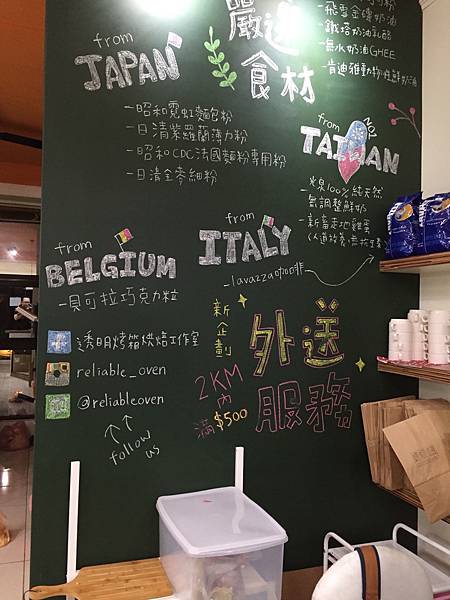 嚴選
食材
飛雪金磚奶油
鐵塔奶油乳酪
無水奶油GHEE
肯迪雅動物性鮮奶油
from
JAPAN
－昭和霓虹麵包粉
－日清紫羅蘭薄力粉
－昭和CDC法國麵粉專用粉
－日清全零細粉
from
TAIWAN
NO1
100%純天然
無調整鮮奶
from
BELGIUM
－貝可拉巧克力粒
from
ITALY
－lavazza咖啡
LAVAZZA
透明烤箱烘焙工作室
reliable_oven
@reliableoven
follow
us
新企劃
外送
服務
2KM
內
滿$500